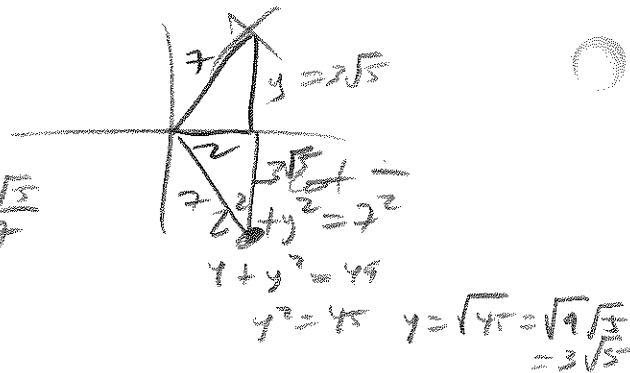 7
y = 3√5
2
-3√5
√5
7
7
2² + y² = 7²
4 + y² = 49
y² = 45 y = √45 = √9 √5
= 3√5